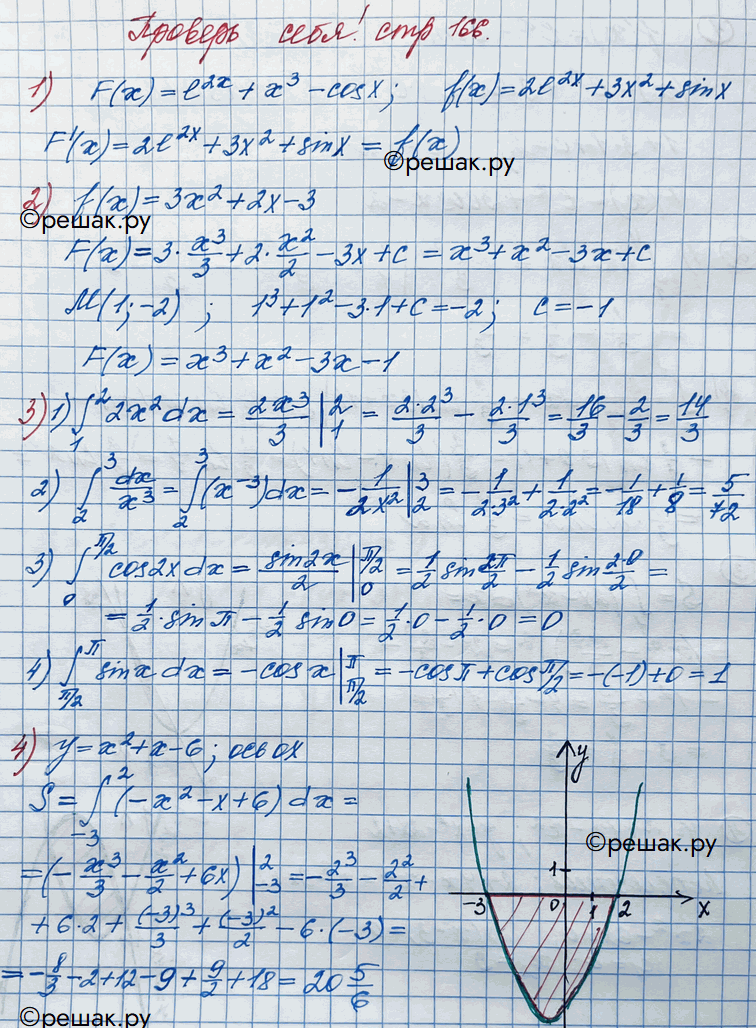 Проверь себя! стр 166.
1) F(x) = e^{2x} + x^3 - cosx; f(x) = 2e^{2x} + 3x^2 + sinx
F'(x) = 2e^{2x} + 3x^2 + sinx = f(x)
©решак.ру
2) f(x) = 3x^2 + 2x - 3
©решак.ру
F(x) = 3·x^3/3 + 2·x^2/2 - 3x + c = x^3 + x^2 - 3x + c
M(1; -2) ; 1^3 + 1^2 - 3·1 + c = -2; c = -1
F(x) = x^3 + x^2 - 3x - 1
3) 1) ∫_1^2 2x^2 dx = 2x^3/3 |_1^2 = 2·2^3/3 - 2·1^3/3 = 16/3 - 2/3 = 14/3
2) ∫_2^3 dx/x^3 = ∫_2^3 (x^{-3})dx = -1/2x^2 |_2^3 = -1/2·3^2 + 1/2·2^2 = -1/18 + 1/8 = 5/72
3) ∫_0^{π/2} cos2x dx = sin2x/2 |_0^{π/2} = 1/2 sin 2π/2 - 1/2 sin 2·0/2 =
= 1/2·sin π - 1/2 sin 0 = 1/2·0 - 1/2·0 = 0
4) ∫_{π/2}^π sinx dx = -cos x |_{π/2}^π = -cosπ + cos π/2 = -(-1) + 0 = 1
4) y = x^2 + x - 6; ось ox
S = ∫_{-3}^2 (-x^2 - x + 6) dx =
= (-x^3/3 - x^2/2 + 6x) |_{-3}^2 = -2^3/3 - 2^2/2 +
+ 6·2 + (-3)^3/3 + (-3)^2/2 - 6·(-3) =
= -8/3 - 2 + 12 - 9 + 9/2 + 18 = 20 5/6
©решак.ру
y
©решак.ру
1
-3 0 1 2 x